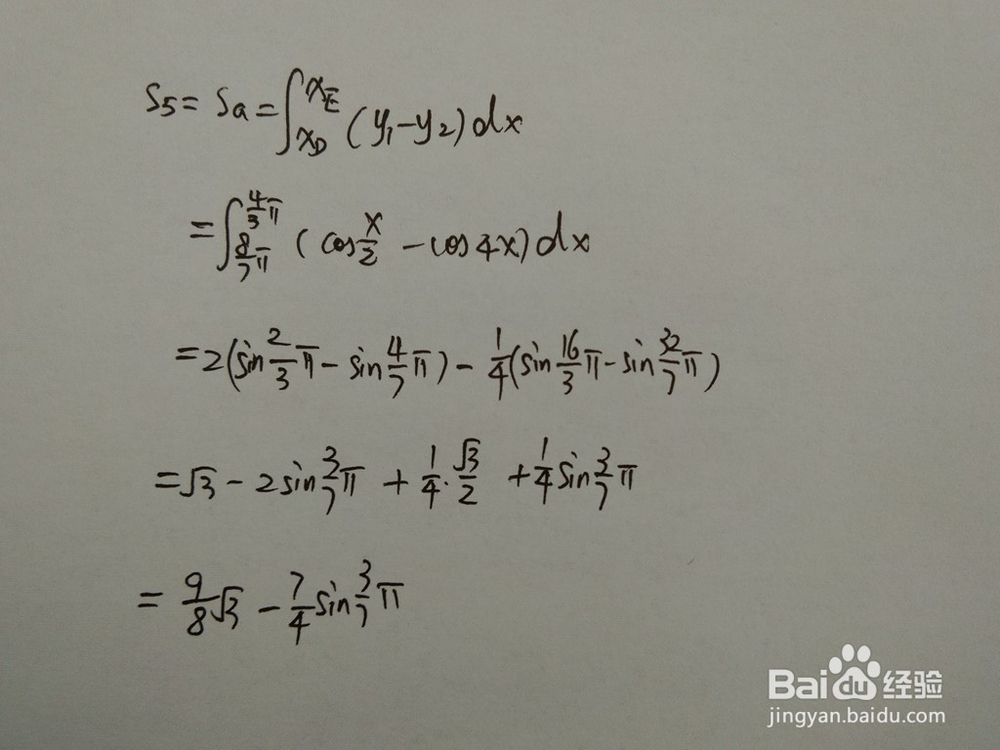 S5 = Sa = ∫_{xD}^{xE} (y₁-y₂)dx
= ∫_{8/7 π}^{4/3 π} (cos x/2 - cos4x)dx
= 2(sin 2/3 π - sin 4/7 π) - 1/4 (sin 16/3 π - sin 32/7 π)
= √3 - 2sin 3/7 π + 1/4 · √3/2 + 1/4 sin 3/7 π
= 9/8 √3 - 7/4 sin 3/7 π
Baidu 经验
jingyan.baidu.com